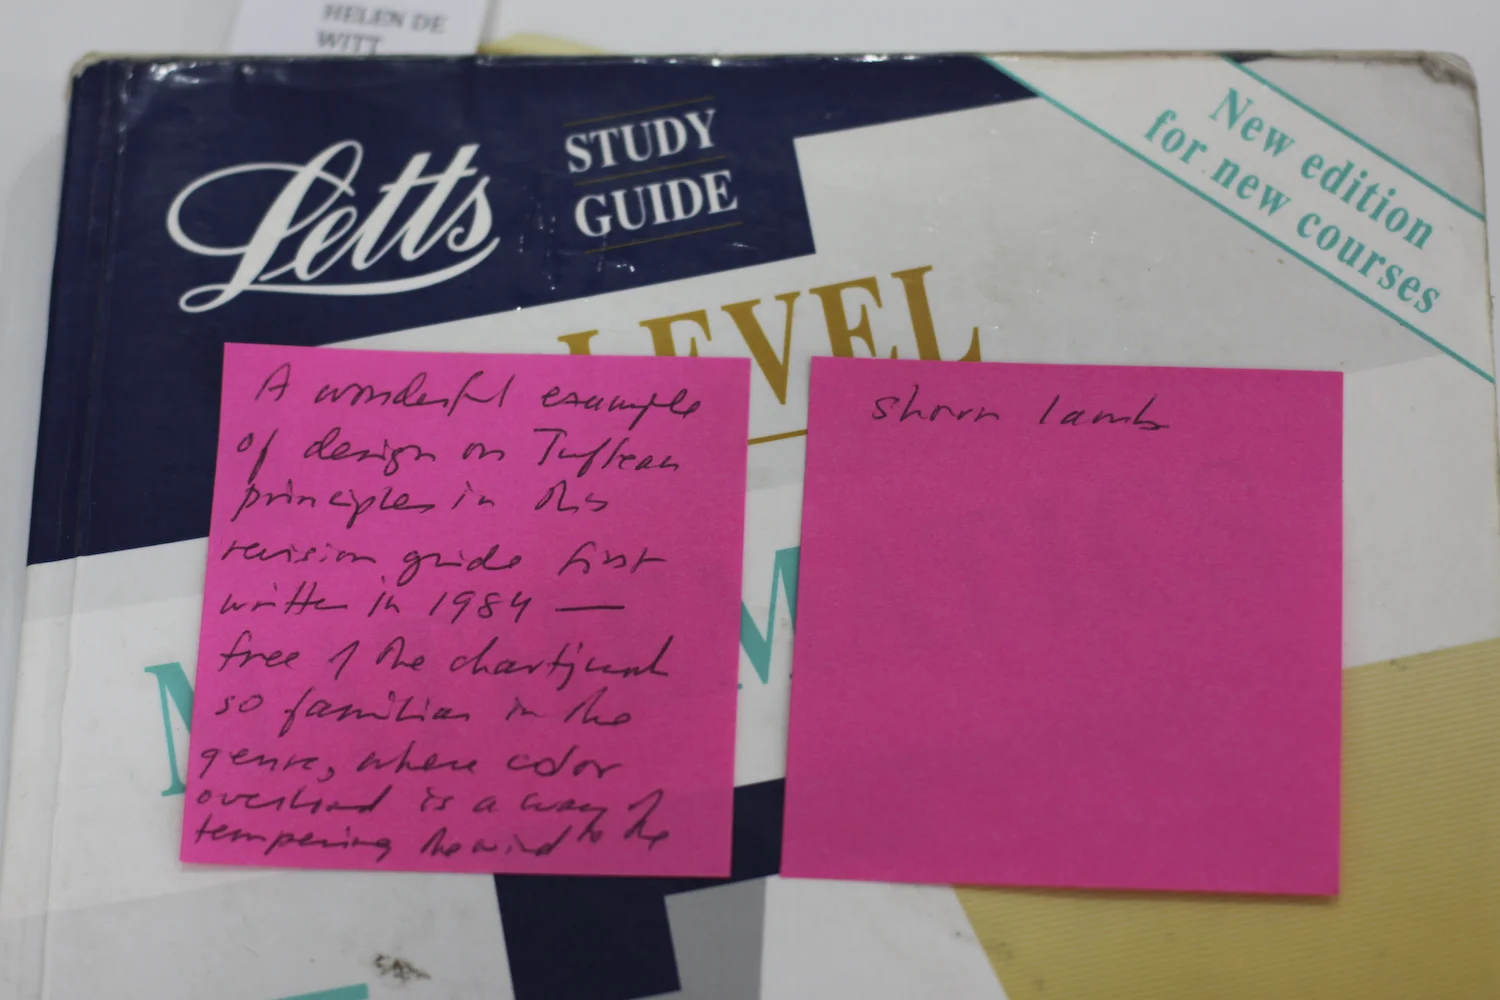 HELEN DE
WITT
Letts
STUDY
GUIDE
New edition
for new courses
LEVEL
A wonderful example
of design on Tuftean
principles in this
revision guide first
written in 1984 —
free of the chartjunk
so familiar in the
genre, where color
overload is a way of
tempering the wind to the
shorn lamb
M